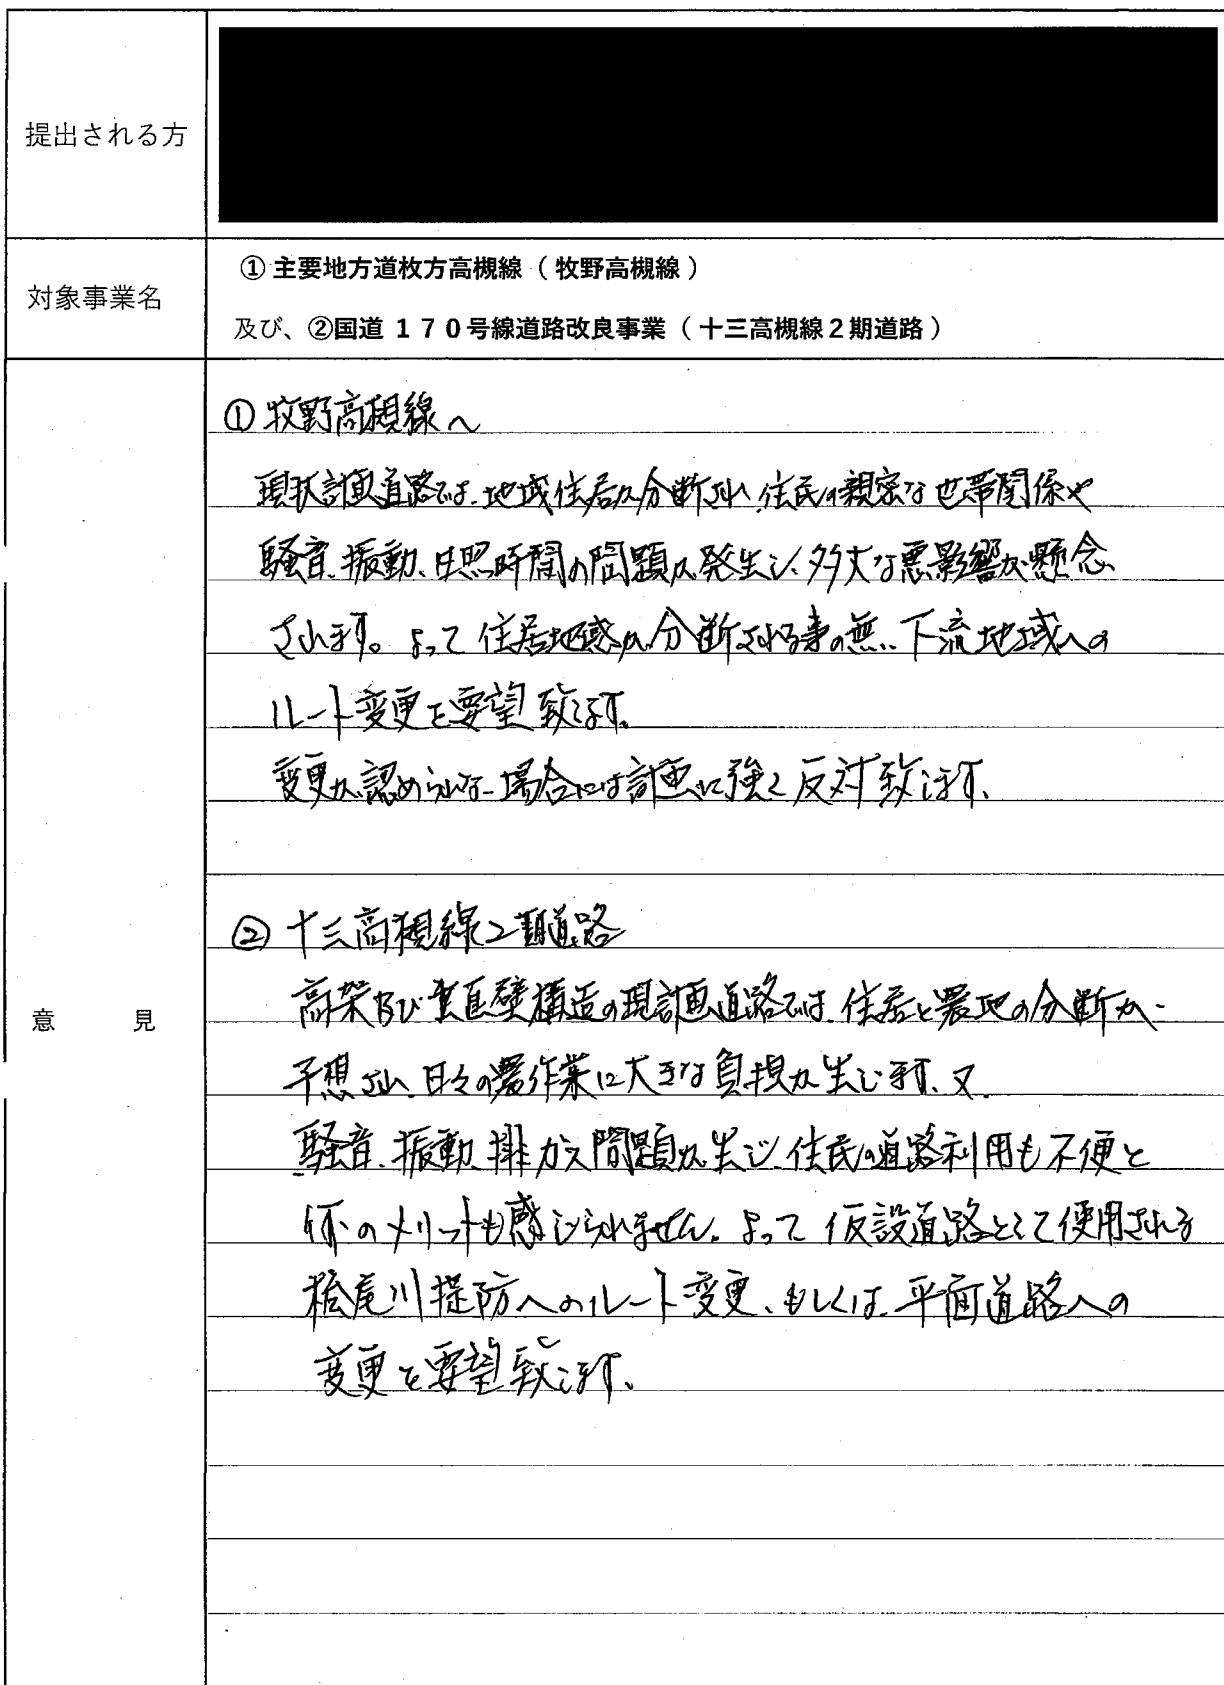 提出される方
対象事業名
①主要地方道枚方高槻線（牧野高槻線）
及び、②国道１７０号線道路改良事業（十三高槻線２期道路）
意見
① 牧野高槻線へ
現状計画道路では、地域住居が分断され、住民の親密な世帯関係や
騒音、振動、日照時間の問題が発生し、多大な悪影響が懸念
されます。よって住居地域が分断される事の無い下流地域への
ルート変更を要望致します。
変更が認められない場合には計画に強く反対致します。
② 十三高槻線２期道路
高架及び垂直壁構造の現計画道路では、住居と農地の分断が
予想され、日々の農作業に大きな負担が生じます。又、
騒音、振動、排ガス問題が生じ、住民の道路利用も不便と
何のメリットも感じられません。よって仮設道路として使用される
桧尾川堤防へのルート変更、もしくは、平面道路への
変更を要望致します。